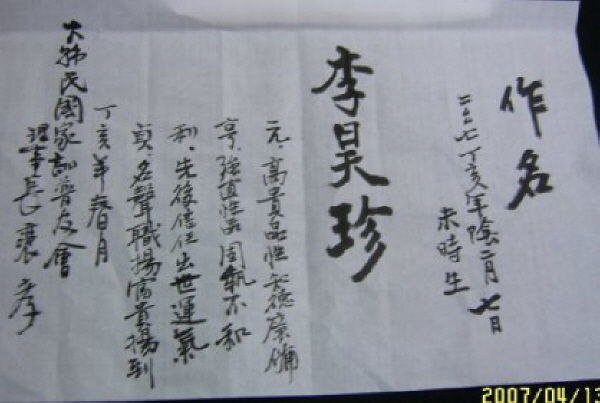 作名
二〇〇七丁亥年陰二月七日
未時生
李昊珍
元.高貴品性知德兼備
亨.強直性品固執不和
利.先後位出世運氣
貞.名聲職揚富貴揚到
丁亥年春月
大韓民國家訓普及會
理事長
2007/04/13